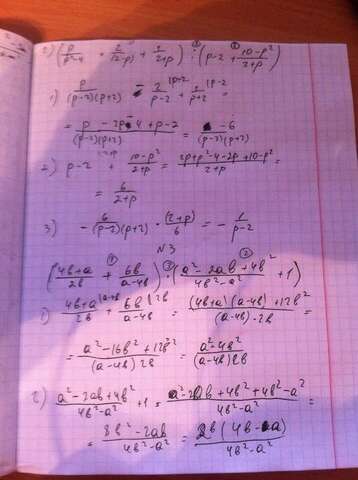 2) (p/(p²-4) + 2/(2-p) + 1/(2+p)) : (p-2 + (10-p²)/(2+p))
1) p/((p-2)(p+2)) - 2/(p-2) + 1/(p+2) =
= (p - 2p - 4 + p - 2)/((p-2)(p+2)) = -6/((p-2)(p+2))
2) p-2 + (10-p²)/(2+p) = (2p+p²-4-2p+10-p²)/(2+p) =
= 6/(2+p)
3) - 6/((p-2)(p+2)) · (2+p)/6 = - 1/(p-2)
N3
((4b+a)/2b + 6b/(a-4b)) : ((a²-2ab+4b²)/(4b²-a²) + 1)
1) (4b+a)/2b + 6b/(a-4b) = ((4b+a)(a-4b)+12b²)/((a-4b)·2b) =
= (a²-16b²+12b²)/((a-4b)2b) = (a²-4b²)/((a-4b)2b)
2) (a²-2ab+4b²)/(4b²-a²) + 1 = (a²-2ab+4b²+4b²-a²)/(4b²-a²) =
= (8b²-2ab)/(4b²-a²) = 2b(4b-a)/(4b²-a²)